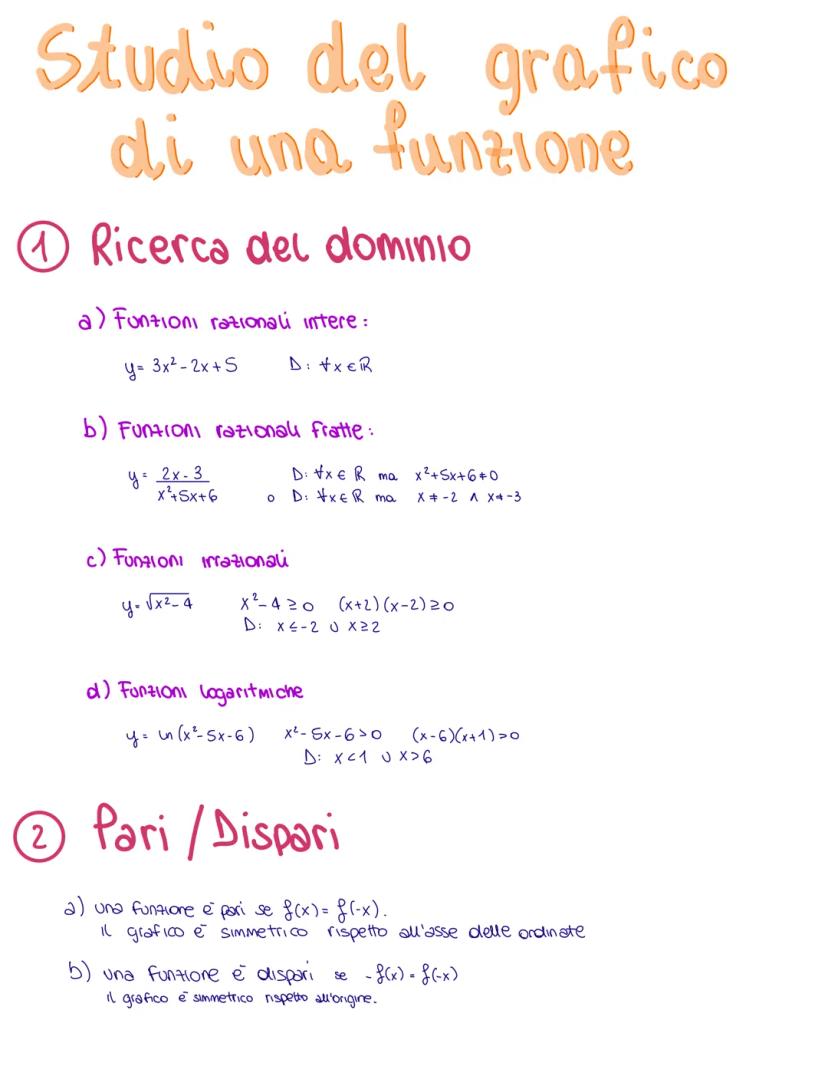 Studio del grafico
di una funzione
1 Ricerca del dominio
a) Funzioni razionali intere:
y= 3x²-2x+5 D: ∀x∈ℝ
b) Funzioni razionali fratte:
y= (2x-3)/(x²+5x+6) D: ∀x∈ℝ ma x²+5x+6≠0
o D: ∀x∈ℝ ma x≠-2 ∧ x≠-3
c) Funzioni irrazionali
y=√(x²-4) x²-4≥0 (x+2)(x-2)≥0
D: x≤-2 ∪ x≥2
d) Funzioni logaritmiche
y= ln(x²-5x-6) x²-5x-6>0 (x-6)(x+1)>0
D: x<1 ∪ x>6
2 Pari/Dispari
a) una funzione è pari se f(x)= f(-x).
il grafico è simmetrico rispetto all'asse delle ordinate
b) una funzione è dispari se -f(x)= f(-x)
il grafico è simmetrico rispetto all'origine.